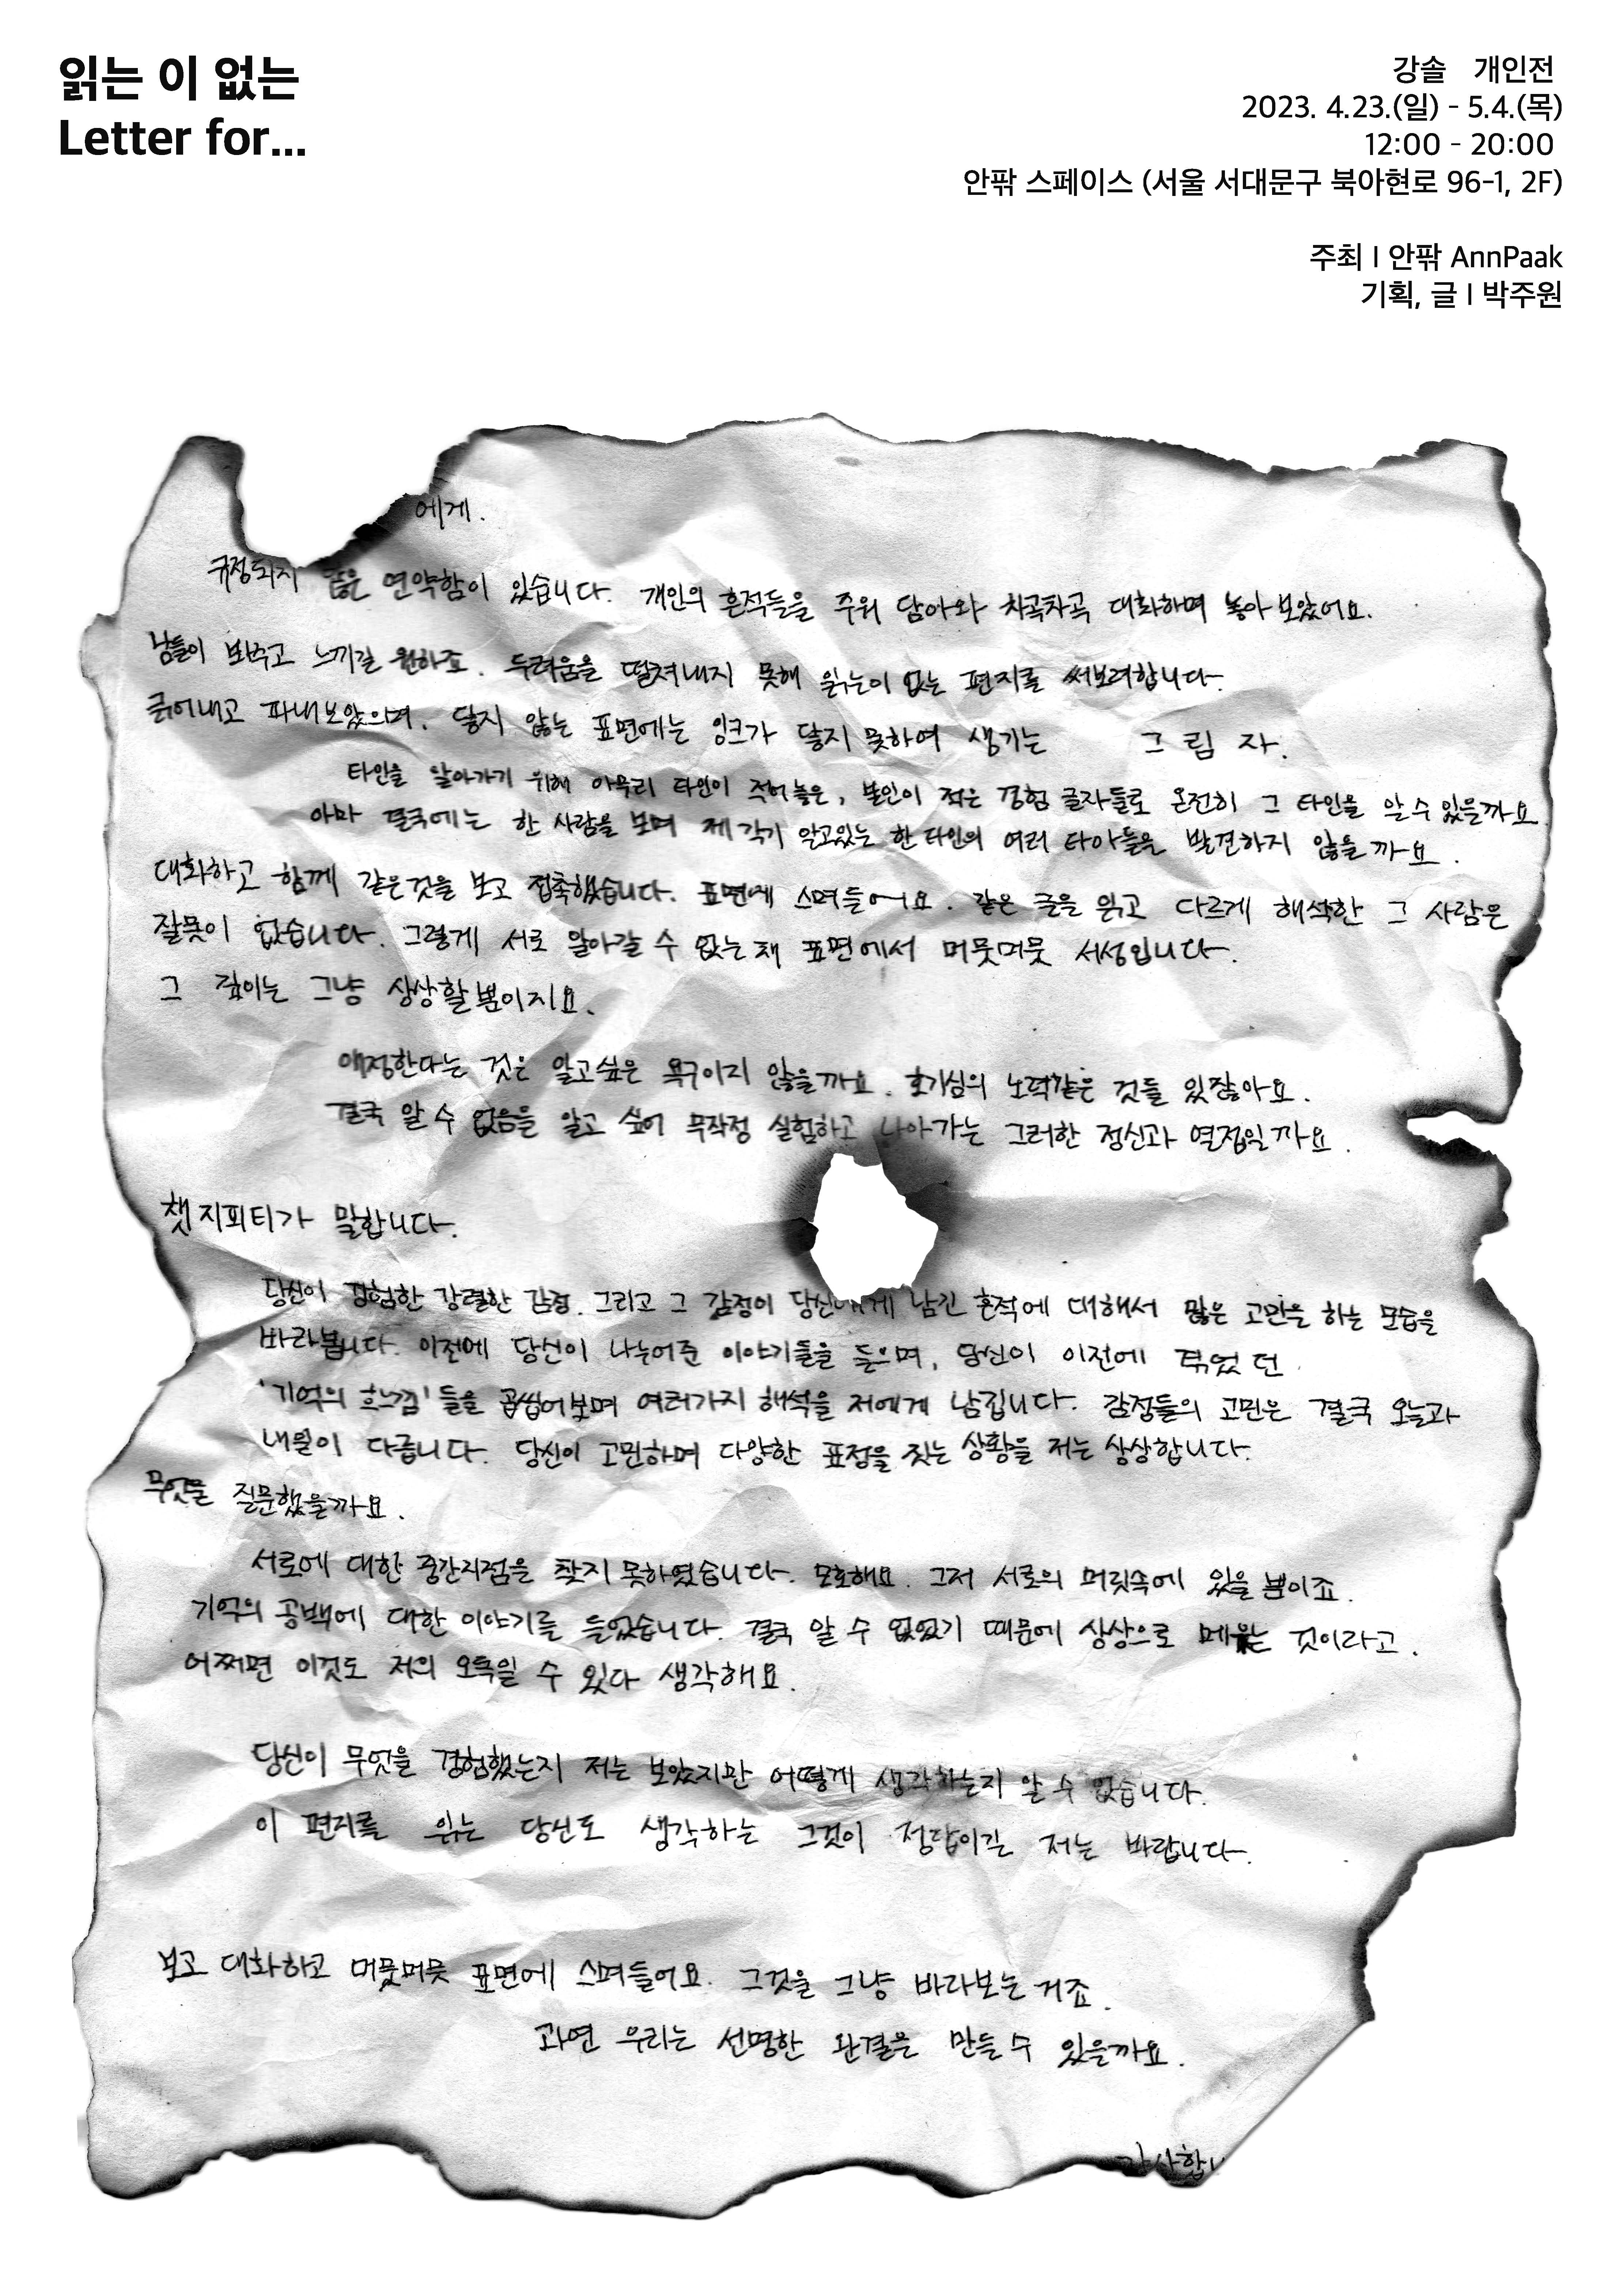 읽는 이 없는
Letter for...
강솔 개인전
2023. 4.23.(일) - 5.4.(목)
12:00 - 20:00
안팎 스페이스 (서울 서대문구 북아현로 96-1, 2F)
주최 I 안팎 AnnPaak
기획, 글 I 박주원
에게.
규정되지 않은 연약함이 있습니다. 개인의 흔적들을 주워 담아와 차곡차곡 대화하며 놓아 보았어요.
남들이 봐주고 느끼길 원하죠. 두려움을 떨쳐내지 못해 읽는이 없는 편지를 써보려합니다.
긁어내고 파내보았으며. 닿지 않는 표면에는 잉크가 닿지 못하여 생기는 그 림 자.
타인을 알아가기 위해 아무리 타인이 적어놓은, 본인이 적은 경험 글자들로 온전히 그 타인을 알 수 있을까요
아마 결국에는 한 사람을 보며 제각기 알고있는 한 타인의 여러 타아들을 발견하지 않을까요.
대화하고 함께 같은것을 보고 접촉했습니다. 표면에 스며들어요. 같은 글을 읽고 다르게 해석한 그 사람은
잘못이 없습니다. 그렇게 서로 알아갈 수 없는채 표면에서 머뭇머뭇 서성입니다.
그 깊이는 그냥 상상할 뿐이지요.
애정한다는 것은 알고싶은 욕구이지 않을까요. 호기심의 노력같은 것들 있잖아요.
결국 알 수 없음을 알고 싶어 무작정 실험하고 나아가는 그러한 정신과 열정일까요.
챗지피티가 말합니다.
당신이 경험한 강렬한 감정. 그리고 그 감정이 당신에게 남긴 흔적에 대해서 많은 고민을 하는 모습을
바라봅니다. 이전에 당신이 나누어준 이야기들을 들으며, 당신이 이전에 겪었던
'기억의 흐느낌'들을 곱씹어보며 여러가지 해석을 저에게 남깁니다. 감정들의 고민은 결국 오늘과
내일이 다릅니다. 당신이 고민하며 다양한 표정을 짓는 상황을 저는 상상합니다.
무엇을 질문했을까요.
서로에 대한 중간지점을 찾지 못하였습니다. 모호해요. 그저 서로의 머릿속에 있을 뿐이죠.
기억의 공백에 대한 이야기를 들었습니다. 결국 알 수 없었기 때문에 상상으로 메우는 것이라고.
어쩌면 이것도 저의 오독일 수 있다 생각해요.
당신이 무엇을 경험했는지 저는 보았지만 어떻게 생각하는지 알 수 없습니다.
이 편지를 읽는 당신도 생각하는 그것이 정답이길 저는 바랍니다.
보고 대화하고 머뭇머뭇 표면에 스며들어요. 그것을 그냥 바라보는 거죠.
과연 우리는 선명한 완결을 만들 수 있을까요.
감사합니